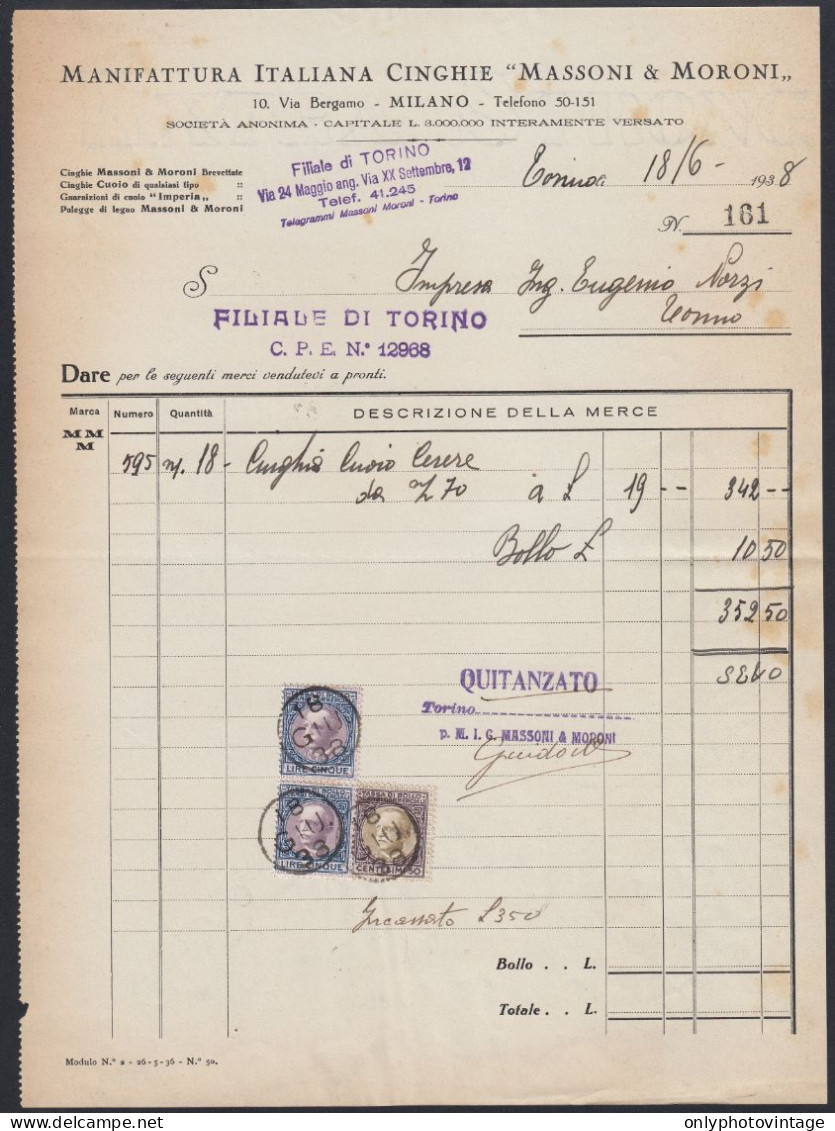 MANIFATTURA ITALIANA CINGHIE "MASSONI & MORONI„
10, Via Bergamo - MILANO - Telefono 50-151
SOCIETÀ ANONIMA - CAPITALE L. 3.000.000 INTERAMENTE VERSATO
Cinghie Massoni & Moroni Brevettate
Cinghie Cuoio di qualsiasi tipo ::
Guarnizioni di cuoio "Imperia" ::
Pulegge di legno Massoni & Moroni
Filiale di TORINO
Via 24 Maggio ang. Via XX Settembre, 12
Telef. 41.245
Telegrammi Massoni Moroni - Torino
Torino 18/6 - 1938
N. 161
S
Impresa Ing. Eugenio Norzi
Torino
FILIALE DI TORINO
C. P. E. N.° 12968
Dare per le seguenti merci vendutevi a pronti.
Marca Numero Quantità DESCRIZIONE DELLA MERCE
MM
M
595 m. 18 - Cinghia Cuoio
da 70 a £ 19 -- 342 --
Bollo £ 10 50
352 50
QUITANZATO
Torino
p. M. I. C. MASSONI & MORONI
18
GIU
38
LIRE CINQUE
LIRE CINQUE
Incassato £ 350
Bollo . . L.
Totale . . L.
Modulo N.° 2 - 26-5-36 - N.° 50.
onlyphotovintage